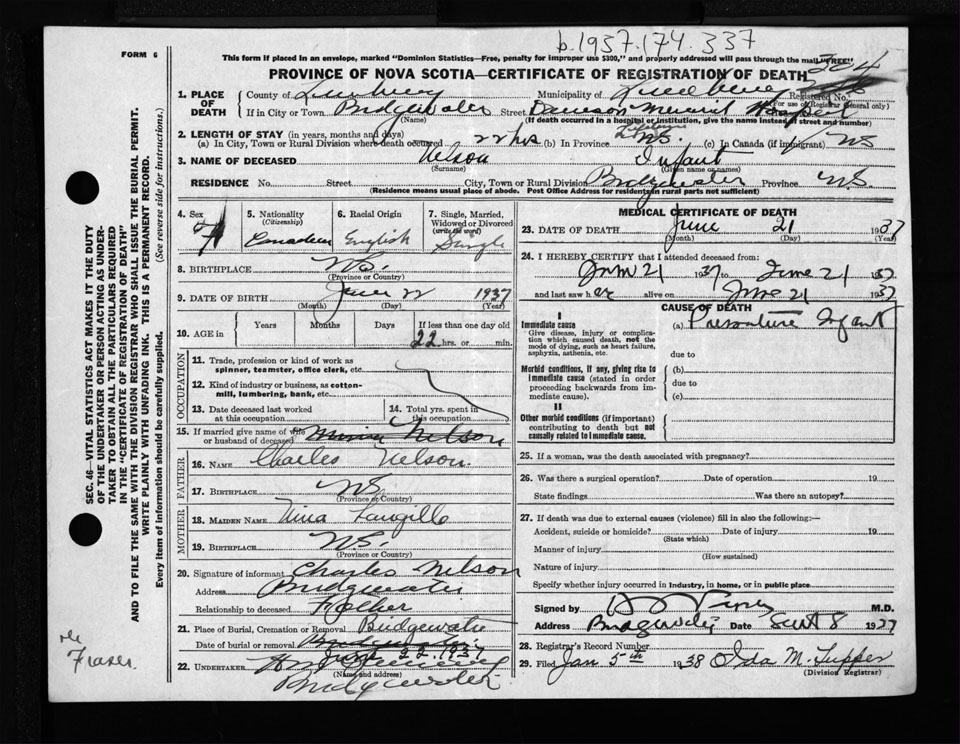 b.1937.174.337
FORM 6
This form if placed in an envelope, marked "Dominion Statistics—Free, penalty for improper use $300," and properly addressed will pass through the mail "FREE"
304
PROVINCE OF NOVA SCOTIA—CERTIFICATE OF REGISTRATION OF DEATH
1. PLACE OF DEATH
County of Lunenburg Municipality of Lunenburg Registered No.
(For use of Registrar General only)
If in City or Town Bridgewater Street Dawson Memorial Hospital
(Name) (If death occurred in a hospital or institution, give the name instead of street and number)
2. LENGTH OF STAY (in years, months and days)
(a) In City, Town or Rural Division where death occurred 22 hrs (b) In Province Lifetime N.S. (c) In Canada (if immigrant) NS
3. NAME OF DECEASED Nelson Infant
(Surname) (Given name or names)
RESIDENCE No. Street City, Town or Rural Division Bridgewater Province N.S.
(Residence means usual place of abode. Post Office Address for residents in rural parts not sufficient)
4. Sex F
5. Nationality (Citizenship) Canadian
6. Racial Origin English
7. Single, Married, Widowed or Divorced (write the word) Single
8. BIRTHPLACE N.S.
(Province or Country)
9. DATE OF BIRTH June 22 1937
(Month) (Day) (Year)
10. AGE in Years Months Days If less than one day old
22 hrs. or min.
OCCUPATION
11. Trade, profession or kind of work as spinner, teamster, office clerk, etc.
12. Kind of industry or business, as cotton-mill, lumbering, bank, etc.
13. Date deceased last worked at this occupation
14. Total yrs. spent in this occupation
15. If married give name of wife or husband of deceased Nelson
FATHER
16. NAME Charles Nelson.
17. BIRTHPLACE N.S.
(Province or Country)
MOTHER
18. MAIDEN NAME Nina Langille
19. BIRTHPLACE N.S.
(Province or Country)
20. Signature of informant Charles Nelson
Address Bridgewater
Relationship to deceased Father
21. Place of Burial, Cremation or Removal Bridgewater
Date of burial or removal 22 1937
22. UNDERTAKER
(Name and address)
Bridgewater
MEDICAL CERTIFICATE OF DEATH
23. DATE OF DEATH June 21 1937
(Month) (Day) (Year)
24. I HEREBY CERTIFY that I attended deceased from:
June 21 1937 to June 21 1937
and last saw her alive on June 21 1937
CAUSE OF DEATH
I
Immediate cause
Give disease, injury or complication which caused death, not the mode of dying, such as heart failure, asphyxia, asthenia, etc.
(a) Premature Infant
due to
Morbid conditions, if any, giving rise to immediate cause (stated in order proceeding backwards from immediate cause).
(b)
due to
(c)
II
Other morbid conditions (if important) contributing to death but not causally related to immediate cause.
25. If a woman, was the death associated with pregnancy?
26. Was there a surgical operation? Date of operation 19
State findings Was there an autopsy?
27. If death was due to external causes (violence) fill in also the following:—
Accident, suicide or homicide? Date of injury 19
(State which)
Manner of injury
(How sustained)
Nature of injury
Specify whether injury occurred in industry, in home, or in public place
Signed by M.D.
Address Bridgewater Date Sept 8 1937
28. Registrar's Record Number
29. Filed Jan 5th 1938 Ida M. Tupper
(Division Registrar)
SEC. 46—VITAL STATISTICS ACT MAKES IT THE DUTY
OF THE UNDERTAKER OR PERSON ACTING AS UNDER-
TAKER TO OBTAIN ALL THE PARTICULARS REQUIRED
IN THE "CERTIFICATE OF REGISTRATION OF DEATH"
AND TO FILE THE SAME WITH THE DIVISION REGISTRAR WHO SHALL ISSUE THE BURIAL PERMIT.
WRITE PLAINLY WITH UNFADING INK. THIS IS A PERMANENT RECORD.
Every item of information should be carefully supplied.
(See reverse side for instructions.)
Fraser.